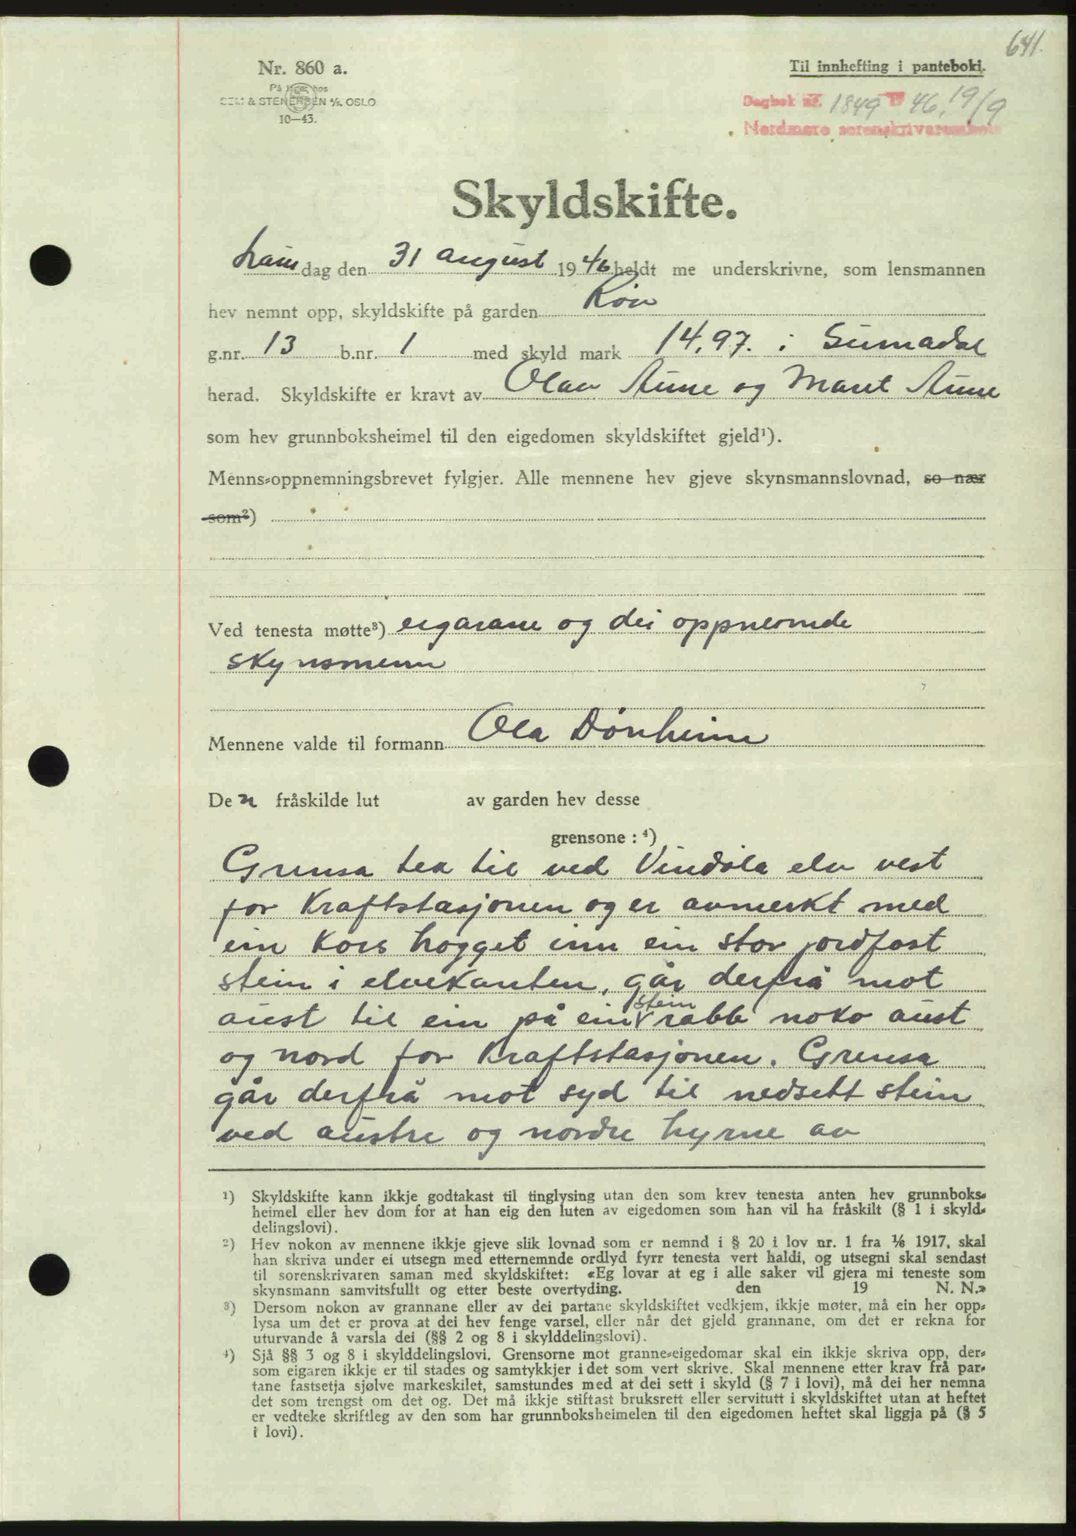 641.
Nr. 860 a.
Til innhefting i pantebok.
På lager hos
SEM & STENERSEN A/S. OSLO
10—43.
Dagbok nr. 1849 19 46, 19/9
Nordmøre sorenskrivarembete
Skyldskifte.
Laur dag den 31 august 1946 heldt me underskrivne, som lensmannen
hev nemnt opp, skyldskifte på garden Røv
g.nr. 13 b.nr. 1 med skyld mark 14,97. i Surnadal
herad. Skyldskifte er kravt av Olav Aune og Marit Aune
som hev grunnboksheimel til den eigedomen skyldskiftet gjeld¹).
Menns-oppnemningsbrevet fylgjer. Alle mennene hev gjeve skynsmannslovnad, so nær
som²)
Ved tenesta møtte³) eigarane og dei oppnemnde
skynsmenn
Mennene valde til formann Ola Dønheim
Den fråskilde lut av garden hev desse
grensone: ⁴)
Grensa tek til ved Vindøla elv vest
for Kraftstasjonen og er avmerkt med
ein Kors hogget inn ein stor jordfast
stein i elvekanten, går derfrå mot
aust til ein på ein stein rabb noko aust
og nord for Kraftstasjonen. Grensa
går derfrå mot syd til nedsett stein
ved austre og nordre hyrne av
¹) Skyldskifte kann ikkje godtakast til tinglysing utan den som krev tenesta anten hev grunnboks-
heimel eller hev dom for at han eig den luten av eigedomen som han vil ha fråskilt (§ 1 i skyld-
delingslovi).
²) Hev nokon av mennene ikkje gjeve slik lovnad som er nemnd i § 20 i lov nr. 1 fra 1/6 1917, skal
han skriva under ei utsegn med etternemnde ordlyd fyrr tenesta vert haldi, og utsegni skal sendast
til sorenskrivaren saman med skyldskiftet: «Eg lovar at eg i alle saker vil gjera mi teneste som
skynsmann samvitsfullt og etter beste overtyding. den 19 N. N.»
³) Dersom nokon av grannane eller av dei partane skyldskiftet vedkjem, ikkje møter, må ein her opp-
lysa um det er prova at dei hev fenge varsel, eller når det gjeld grannane, om det er rekna for
uturvande å varsla dei (§§ 2 og 8 i skylddelingslovi).
⁴) Sjå §§ 3 og 8 i skylddelingslovi. Grensorne mot granne-eigedomar skal ein ikkje skriva opp, der-
som eigaren ikkje er til stades og samtykkjer i det som vert skrive. Skal mennene etter krav frå par-
tane fastsetja sjølve markeskilet, samstundes med at dei sett i skyld (§ 7 i lovi), må dei her nemna
det som trengst om det og. Det må ikkje stiftast bruksrett eller servitutt i skyldskiftet utan at heftet
er vedteke skriftleg av den som har grunnboksheimelen til den eigedomen heftet skal liggja på (§ 5
i lovi).